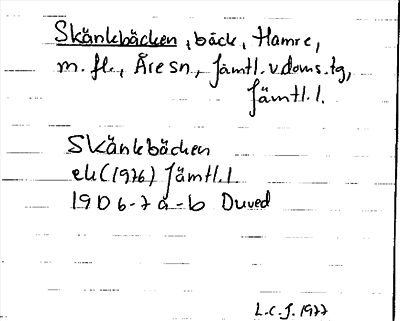 Skänkbäcken, bäck, Hamre,
m. fl., Åre sn, Jämtl. v. doms. tg,
Jämtl. l.
Skänkbäcken
ek (1976) Jämtl. l.
19D 6-7 a-b Duved
L.C.J. 1977